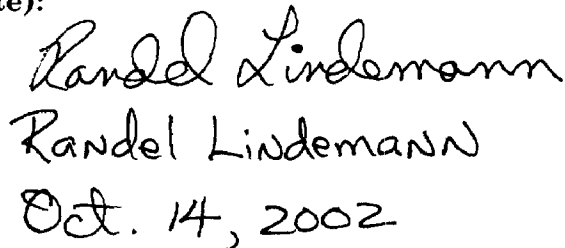 te):
Randel Lindemann
Randel Lindemann
Oct. 14, 2002